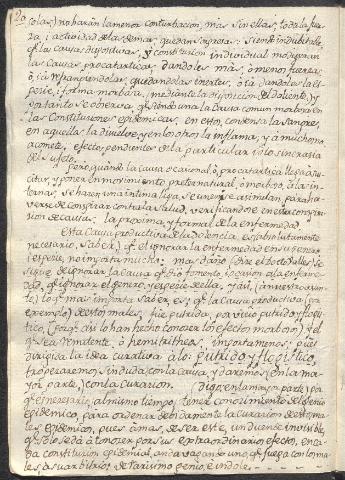 solas) no harán la menor conturbacion, mas sin ellas, toda la fuer-
za, i actividad de las demas, quedan supresas. Siendo indubitable,
qe. las causas dispositivas, y constitucion individual modifican
las causas procatarticas dandoles mas, ó menos fuerza
ó, ia infringiendolas, quedandoles inertes, ó ia dandoles la es-
pecie, i forma morbosa, mediante la disposicion del doliente, y
por tanto se observa, qe. siendo una la causa comun morbosa en
las Constituciones epidemicas, en estos, condensa la sangre,
en aquellos la disuelve, y en los otros la inflama, y á muchos no
acomete, efecto, pendiente de la particular idiosincrasia
del sujeto.
Pero, quando la causa ocasional, ó procatartica llega á su-
citar, y poner en movimiento preternatural, ó morboso, á la in-
ternas, se hacen una intima liga, se unen, se asimilan para ha-
verse de conspirar contra la salud, verificandose en esta conspira-
cion de causas, la proxima, y formal de la enfermedad.
Esta causa productiva de la dolencia, es absolutamente
necesario, saber, qe. el ignorar la enfermedad en su genero
i especie, no importa mucho: mas daño (dice el doctor Valles) se
sigue de ignorar la causa qe. dio fomento, i ocasion, á la enferme-
dad, qe. ignorar el genero, y especie de ella, y asi, (á nuestro asun-
to) lo qe. mas importa saber, es, qe. la causa productiva (por
exemplo) de estos males, fue putrida, por vicio putrido, y flogis-
tico, (porqe. asi lo han hecho conocer los efectos morbosos) xª el
qe. sea remitente, ó hemitrithea, importa menos; pues
dirigida la idea curativa á lo: putrido, y flogistico,
troperaremos sin duda, con la causa, y daremos, (en la ma-
yor parte) con la curacion. (Digo, en la mayor parte) por-
qe. es necesario, al mismo tiempo, tener conocimiento del genio
epidemico, para ordenar debidamente la curacion de estos ma-
les epidemicos, pues á mas, de ser este, un duende invisible,
qe. solo se dá á conocer por sus extraordinarios efectos, en ca-
da constitucion epidemial, anda vagando uno, qe. juega con los ma-
les á su arbitrio, de tarisimo genio, e indole.